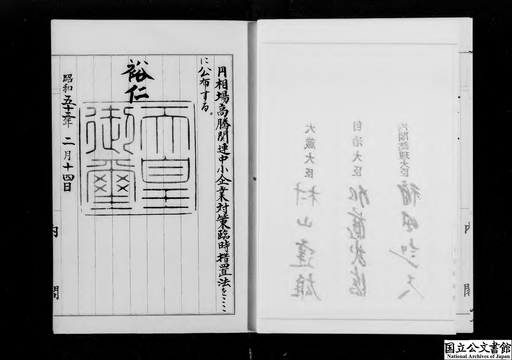 内閣総理大臣
福田赳夫
自治大臣
加藤武徳
大蔵大臣
村山達雄
円相場高騰関連中小企業対策臨時措置法をここ
に公布する。
裕仁
天皇
御璽
昭和五十三年二月十四日
内閣
国立公文書館
National Archives of Japan